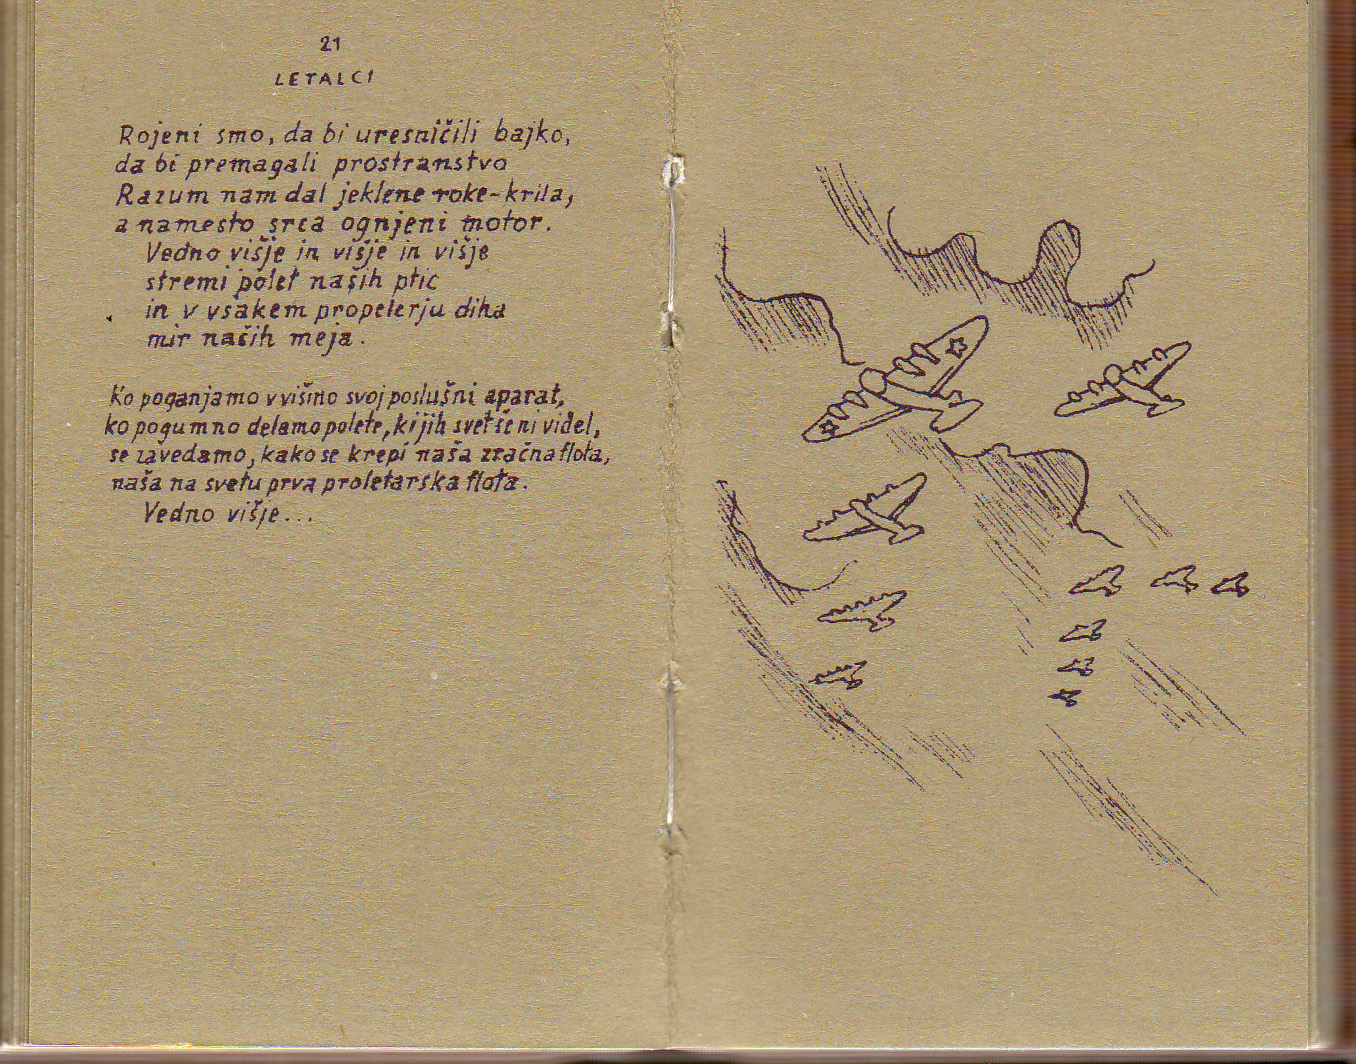 21
LETALCI
Rojeni smo, da bi uresničili bajko,
da bi premagali prostranstvo
Razum nam dal jeklene roke-krila,
a namesto srca ognjeni motor.
Vedno višje in višje in višje
stremi polet naših ptic
in v vsakem propelerju diha
mir naših meja.
Ko poganjamo v višino svoj poslušni aparat,
ko pogumno delamo polete, ki jih svet še ni videl,
se zavedamo, kako se krepi naša zračna flota,
naša na svetu prva proletarska flota.
Vedno višje...